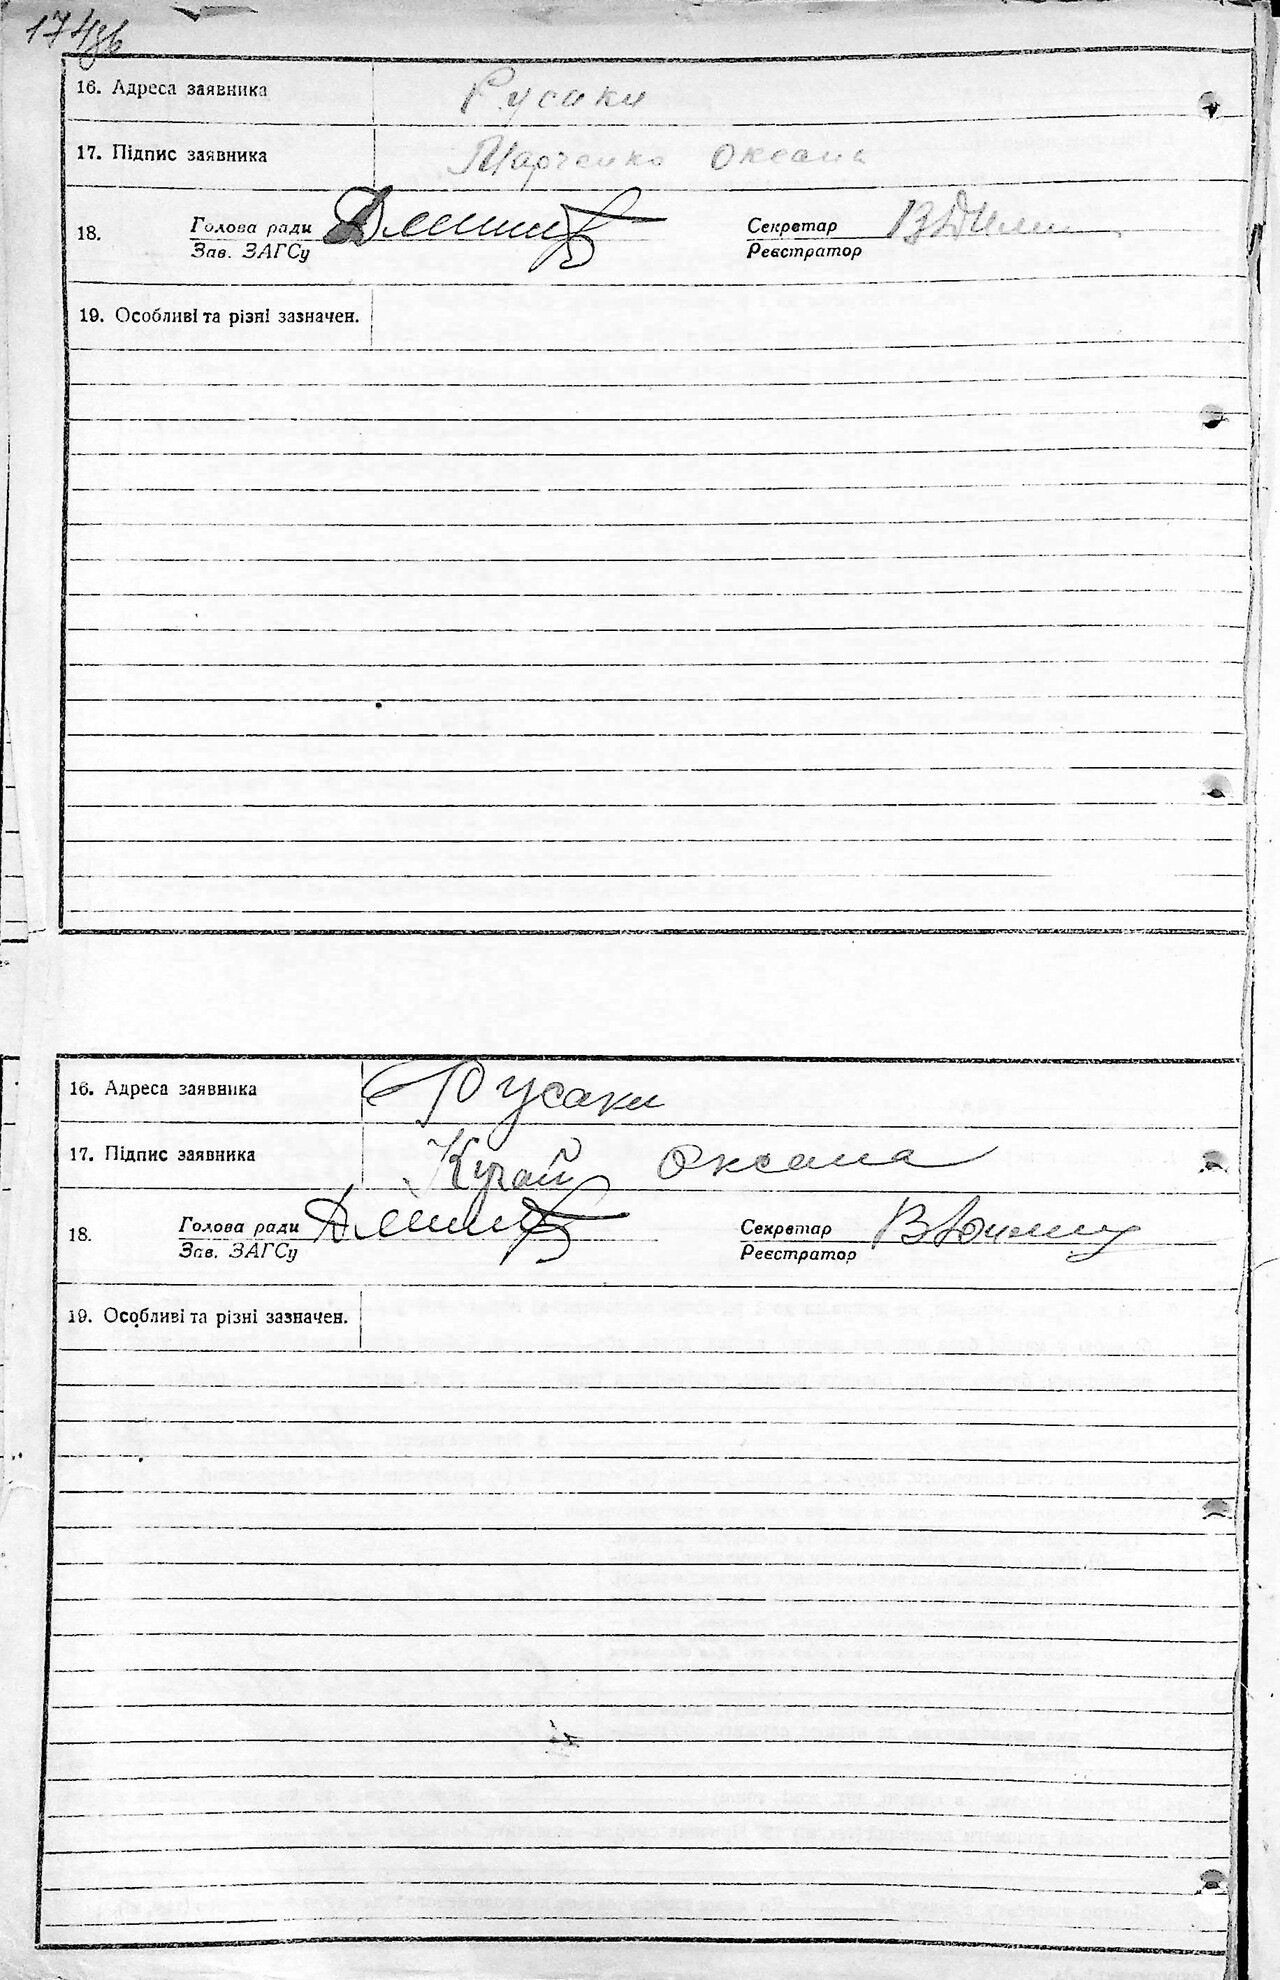 174зв
16. Адреса заявника Русаки
17. Підпис заявника Марченко Оксана
18. Голова ради Секретар
Зав. ЗАГСу Реєстратор
19. Особливі та різні зазначен.
16. Адреса заявника Русаки
17. Підпис заявника Кучай Оксана
18. Голова ради Секретар
Зав. ЗАГСу Реєстратор
19. Особливі та різні зазначен.